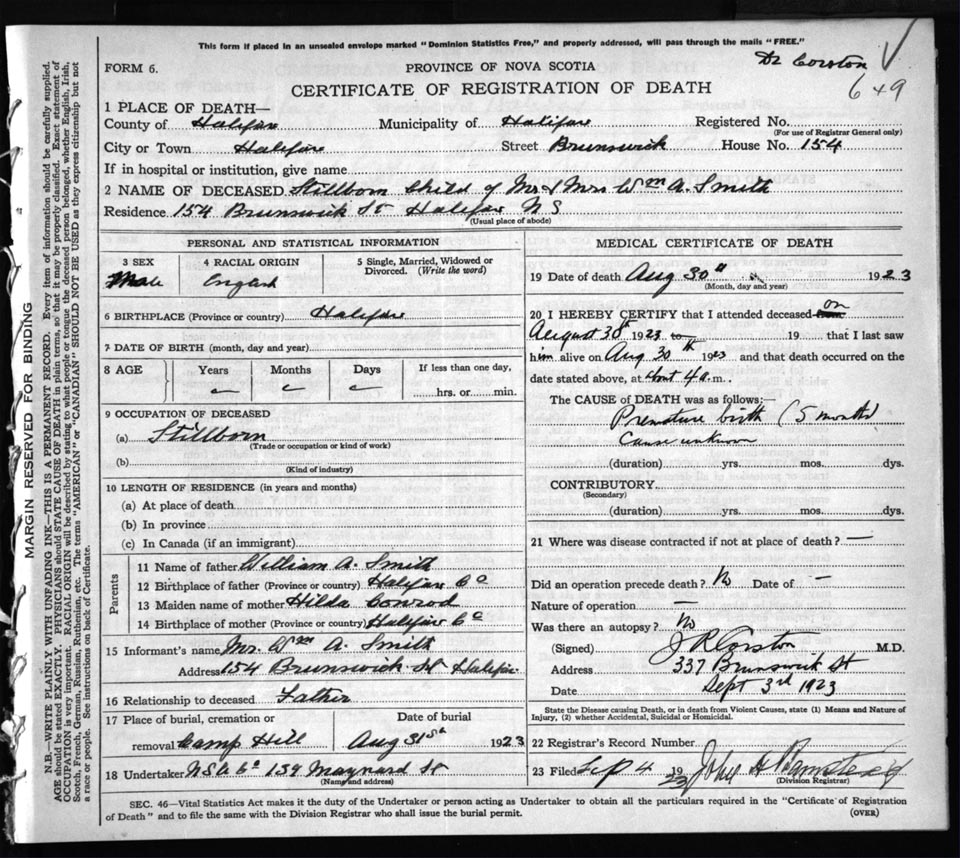 This form if placed in an unsealed envelope marked "Dominion Statistics Free," and properly addressed, will pass through the mails "FREE."
Dr Corston
FORM 6.
PROVINCE OF NOVA SCOTIA
649
CERTIFICATE OF REGISTRATION OF DEATH
1 PLACE OF DEATH—
County of Halifax Municipality of Halifax Registered No.
(For use of Registrar General only)
City or Town Halifax Street Brunswick House No. 154
If in hospital or institution, give name
2 NAME OF DECEASED Stillborn Child of Mr & Mrs Wm A. Smith
Residence 154 Brunswick St Halifax N S
(Usual place of abode)
PERSONAL AND STATISTICAL INFORMATION
3 SEX 4 RACIAL ORIGIN 5 Single, Married, Widowed or Divorced. (Write the word)
Male English
6 BIRTHPLACE (Province or country) Halifax
7 DATE OF BIRTH (month, day and year)
8 AGE Years Months Days If less than one day,
hrs. or min.
9 OCCUPATION OF DECEASED
(a) Stillborn
(Trade or occupation or kind of work)
(b)
(Kind of industry)
10 LENGTH OF RESIDENCE (in years and months)
(a) At place of death
(b) In province
(c) In Canada (if an immigrant)
Parents
11 Name of father William A. Smith
12 Birthplace of father (Province or country) Halifax Co
13 Maiden name of mother Hilda Conrod
14 Birthplace of mother (Province or country) Halifax Co
15 Informant's name Mr. Wm A. Smith
Address 154 Brunswick St Halifax
16 Relationship to deceased Father
17 Place of burial, cremation or removal Camp Hill
Date of burial
Aug 31st 1923
18 Undertaker N S U Co 139 Maynard St
(Name and address)
MEDICAL CERTIFICATE OF DEATH
19 Date of death Aug 30th 1923
(Month, day and year)
20 I HEREBY CERTIFY that I attended deceased from on
August 30th 1923 to 19 that I last saw
him alive on Aug 30th 1923 and that death occurred on
date stated above, at about 4 a.m.
The CAUSE of DEATH was as follows:—
Premature birth (5 months)
Cause unknown
(duration) yrs. mos. dys.
CONTRIBUTORY
(Secondary)
(duration) yrs. mos. dys.
21 Where was disease contracted if not at place of death? —
Did an operation precede death? No Date of —
Nature of operation —
Was there an autopsy? No
(Signed) J R Corston M.D.
Address 337 Brunswick St
Date Sept 3rd 1923
State the Disease causing Death, or in death from Violent Causes, state (1) Means and Nature of
Injury, (2) whether Accidental, Suicidal or Homicidal.
22 Registrar's Record Number
23 Filed Sep 4 1923 John A
(Division Registrar)
SEC. 46—Vital Statistics Act makes it the duty of the Undertaker or person acting as Undertaker to obtain all the particulars required in the "Certificate of Registration
of Death" and to file the same with the Division Registrar who shall issue the burial permit.
(OVER)
MARGIN RESERVED FOR BINDING
N.B.—WRITE PLAINLY WITH UNFADING INK—THIS IS A PERMANENT RECORD. Every item of information should be carefully supplied.
AGE should be stated EXACTLY. PHYSICIANS should STATE CAUSE OF DEATH in plain terms, so that it may be properly classified. Exact statement of
OCCUPATION is very important. RACIAL ORIGIN will be described by stating to what people or tongue the deceased person belonged, whether English, Irish,
Scotch, French, German, Russian, Ruthenian, etc. The terms "AMERICAN" or "CANADIAN" SHOULD NOT BE USED as they express citizenship but not
a race or people. See instructions on back of Certificate.